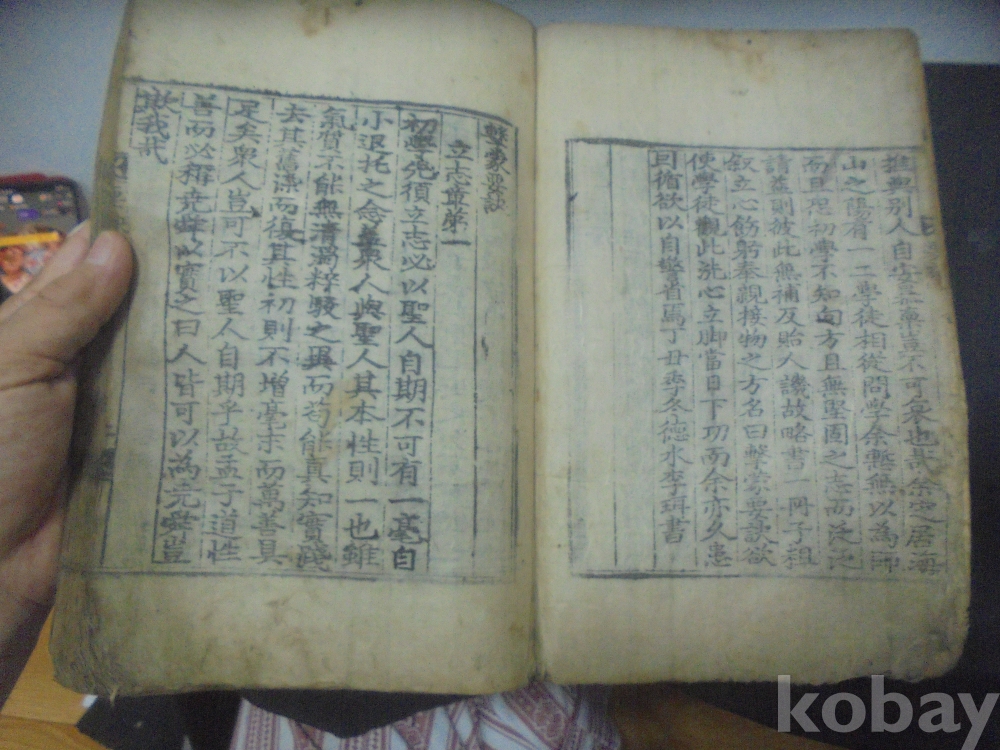 推與別人自安暴棄豈不可哀也哉余定居海
山之陽有一二學徒相從問學余慙無以為師
而且恐初學不知向方且無堅固之志而泛泛
請益則彼此無補反貽人譏故略書一冊子粗
叙立心飭躬奉親接物之方名曰擊蒙要訣欲
使學徒觀此洗心立脚當日下功而余亦久患
因循欲以自警省焉丁丑季冬德水李珥書
擊蒙要訣
立志章第一
初學先須立志必以聖人自期不可有一毫自
小退托之念蓋衆人與聖人其本性則一也雖
氣質不能無清濁粹駁之異而苟能真知實踐
去其舊染而復其性初則不增毫末而萬善具
足矣衆人豈可不以聖人自期乎故孟子道性
善而必稱堯舜以實之曰人皆可以為堯舜豈
欺我哉
kobay